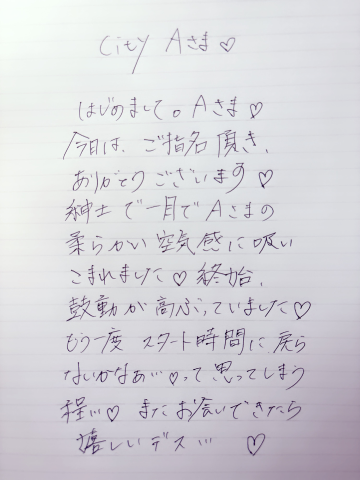 City Aさま♡
はじめまして。Aさま♡
今日は、ご指名頂き、
ありがとうございます♡
紳士で一目でAさまの
柔らかい空気感に吸い
こまれました♡終始、
鼓動が高ぶっていました♡
もう一度 スタート時間に戻ら
ないかなぁ…♡って思ってしまう
程…♡ またお会いできたら
嬉しいデス… ♡